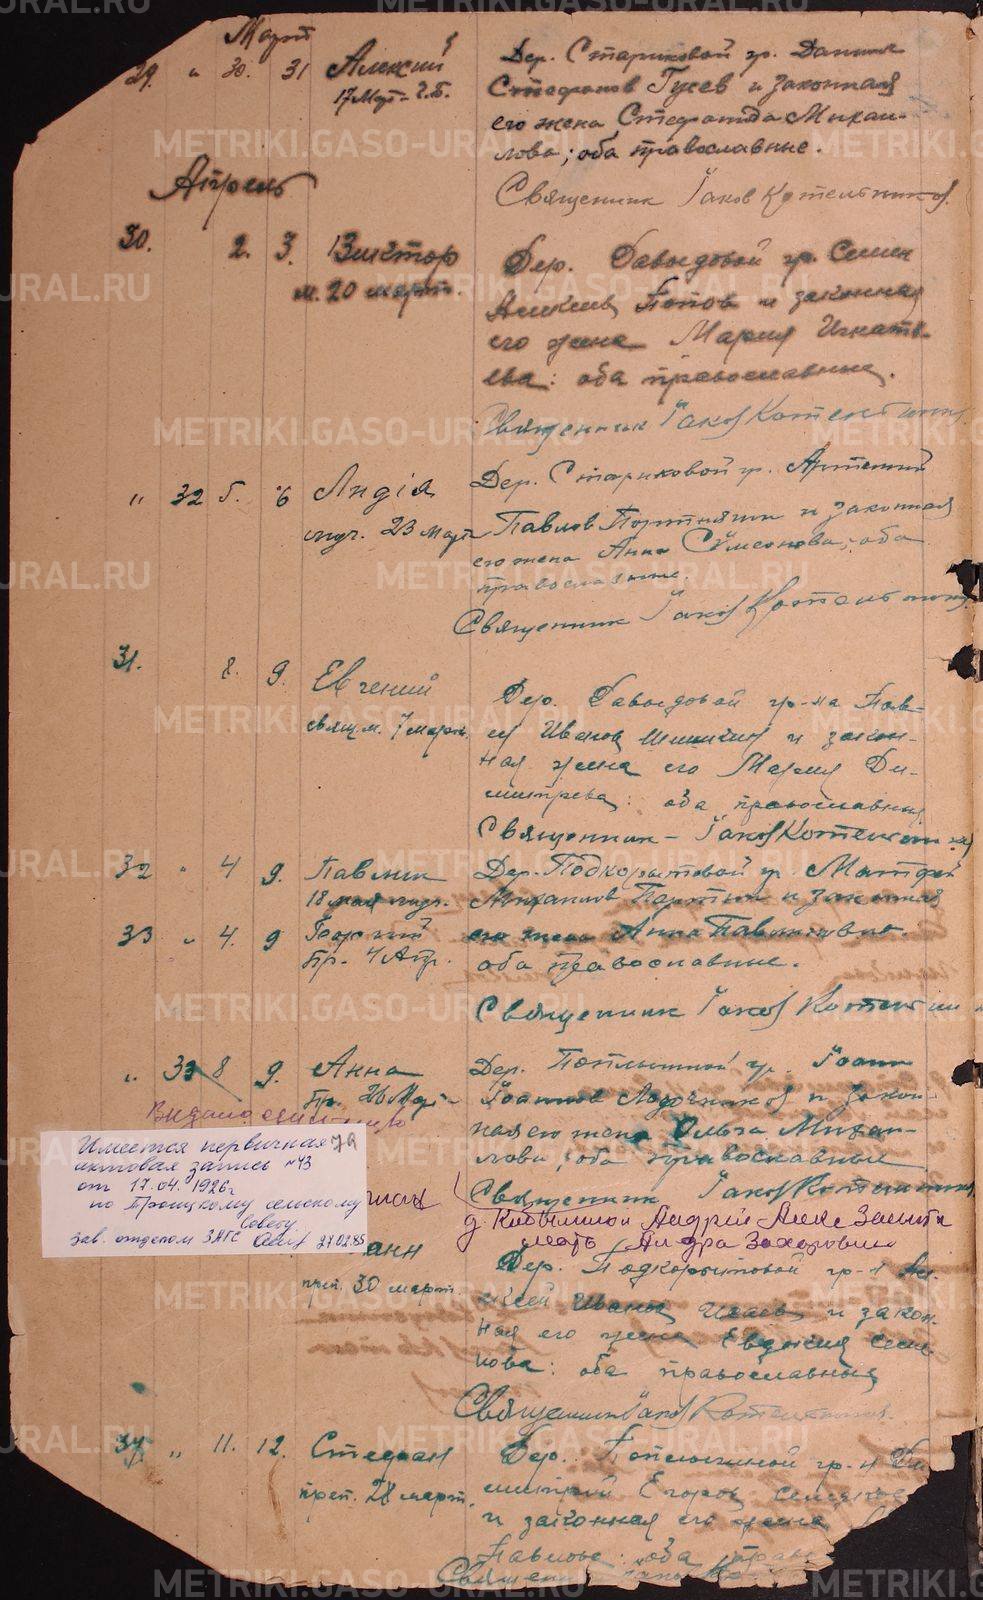 Март
29. " 30. 31 Алексий
17 Март. Ч.Б.
Дер. Стариковой гр. Даниил
Стефанов Гусев и законная
его жена Стефанида Михаи-
лова; оба православные.
Священник Іаков Котельников.
Апрель
30. 2. 3. Виктор
м. 20 март.
Дер. Давыдовой гр. Семен
Алексеев Попов и законная
его жена Мария Игнать-
ева: оба православные.
Священник Іаков Котельников
" 32 5. 6 Лидія
муч. 23 Март
Дер. Стариковой гр. Артемий
Павлов Портнягин и законная
его жена Анна Симеонова; оба
православные.
Священник Іаков Котельников
31. 8. 9. Евгений
свящ.м. 7 марта.
Дер. Давыдовой гр-на Пав-
ел Иванов и закон-
ная жена его Мария Ди-
митриева: оба православные
Священник – Іаков Котельников
32 " 4 9. Павлин
18 мая муч.
33 " 4. 9 Георгий
Пр. 4 Апр.
Дер. Подкорытовой гр. Матфей
Михаилов Портнягин и законная
его жена Анна Павлиновна.
оба православные.
Священник Іаков Котельников
" 33 8 9. Анна
Пр. 26 Март
Дер. Поплыгиной гр. Іоанн
Іоаннов и закон-
ная его жена Ольга Михаи-
лова; оба православные
Священник Іаков Котельников
Выдано
Имеется первичная
актовая запись №43
от 17.04.1926г
по Троицкому сельскому
Совету
зав. отделом ЗАГС 27.02.85
Андрей Алекс
мать Захаровна
анн
преп. 30 март.
Дер. Подкорытовой гр-н Але-
ксей Иванов и закон-
ная его жена Евдокия Семе-
нова: оба православные
Священник Іаков Котельников.
34 " 11. 12. Стефан
преп. 28 март.
Дер. гр-н Ди-
митрий Егоров
и законная его жена
Павлова: оба право
Священ
METRIKI.GASO-URAL.RU